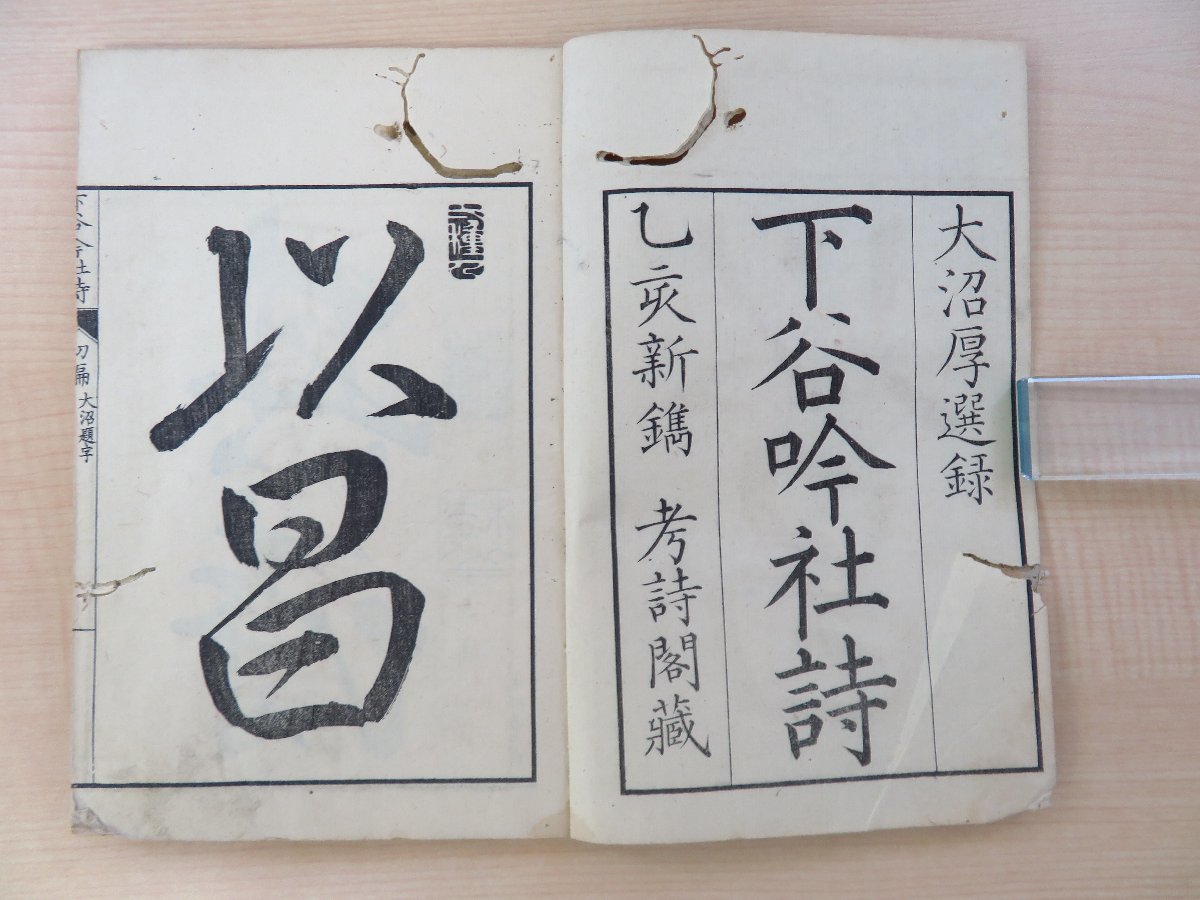 大沼厚選録
下谷吟社詩
乙亥新鐫 考詩閣藏
以昌
下谷吟社詩
初編 大沼題字